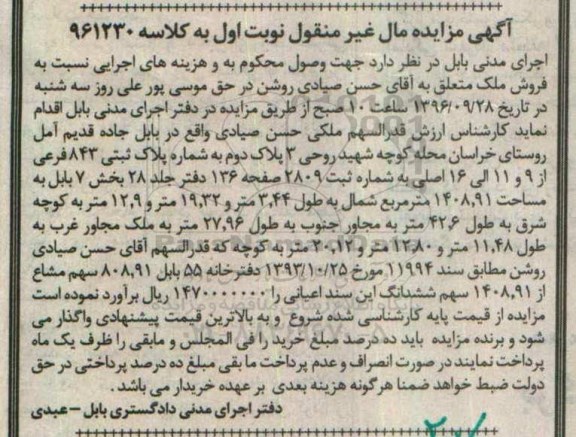 آگهی مزایده مال غیر منقول نوبت اول به کلاسه ۹۶۱۲۳۰
اجرای مدنی بابل در نظر دارد جهت وصول محکوم به و هزینه های اجرایی نسبت به
فروش ملک متعلق به آقای حسن صیادی روشن در حق موسی پور علی روز سه شنبه
در تاریخ ۱۳۹۶/۰۹/۲۸ ساعت ۱۰ صبح از طریق مزایده در دفتر اجرای مدنی بابل اقدام
نماید کارشناس ارزش قدرالسهم ملکی حسن صیادی واقع در بابل جاده قدیم آمل
روستای خراسان محله کوچه شهید روحی ۳ پلاک دوم به شماره پلاک ثبتی ۸۴۳ فرعی
از ۹ و ۱۱ الی ۱۶ اصلی به شماره ثبت ۲۸۰۹ صفحه ۱۳۶ دفتر جلد ۲۸ بخش ۷ بابل به
مساحت ۱۴۰۸,۹۱ مترمربع شمال به طول ۳,۴۴ متر و ۱۹,۳۲ متر و ۱۲,۹ متر به کوچه
شرق به طول ۴۲,۶ متر به مجاور جنوب به طول ۲۷,۹۶ متر به ملک مجاور غرب به
طول ۱۱,۴۸ متر و ۱۲,۸۰ متر و ۲۰,۱۲ متر به کوچه که قدرالسهم آقای حسن صیادی
روشن مطابق سند ۱۱۹۹۴ مورخ ۱۳۹۳/۱۰/۲۵ دفترخانه ۵۵ بابل ۸۰۸,۹۱ سهم مشاع
از ۱۴۰۸,۹۱ سهم ششدانگ این سند اعیانی را ۱۴۷۰۰۰۰۰۰۰ ریال برآورد نموده است
مزایده از قیمت پایه کارشناسی شده شروع و به بالاترین قیمت پیشنهادی واگذار می
شود و برنده مزایده باید ده درصد مبلغ خرید را فی المجلس و مابقی را ظرف یک ماه
پرداخت نمایند در صورت انصراف و عدم پرداخت ما بقی مبلغ ده درصد پرداختی در حق
دولت ضبط خواهد ضمنا هرگونه هزینه بعدی بر عهده خریدار می باشد.
دفتر اجرای مدنی دادگستری بابل – عبدی